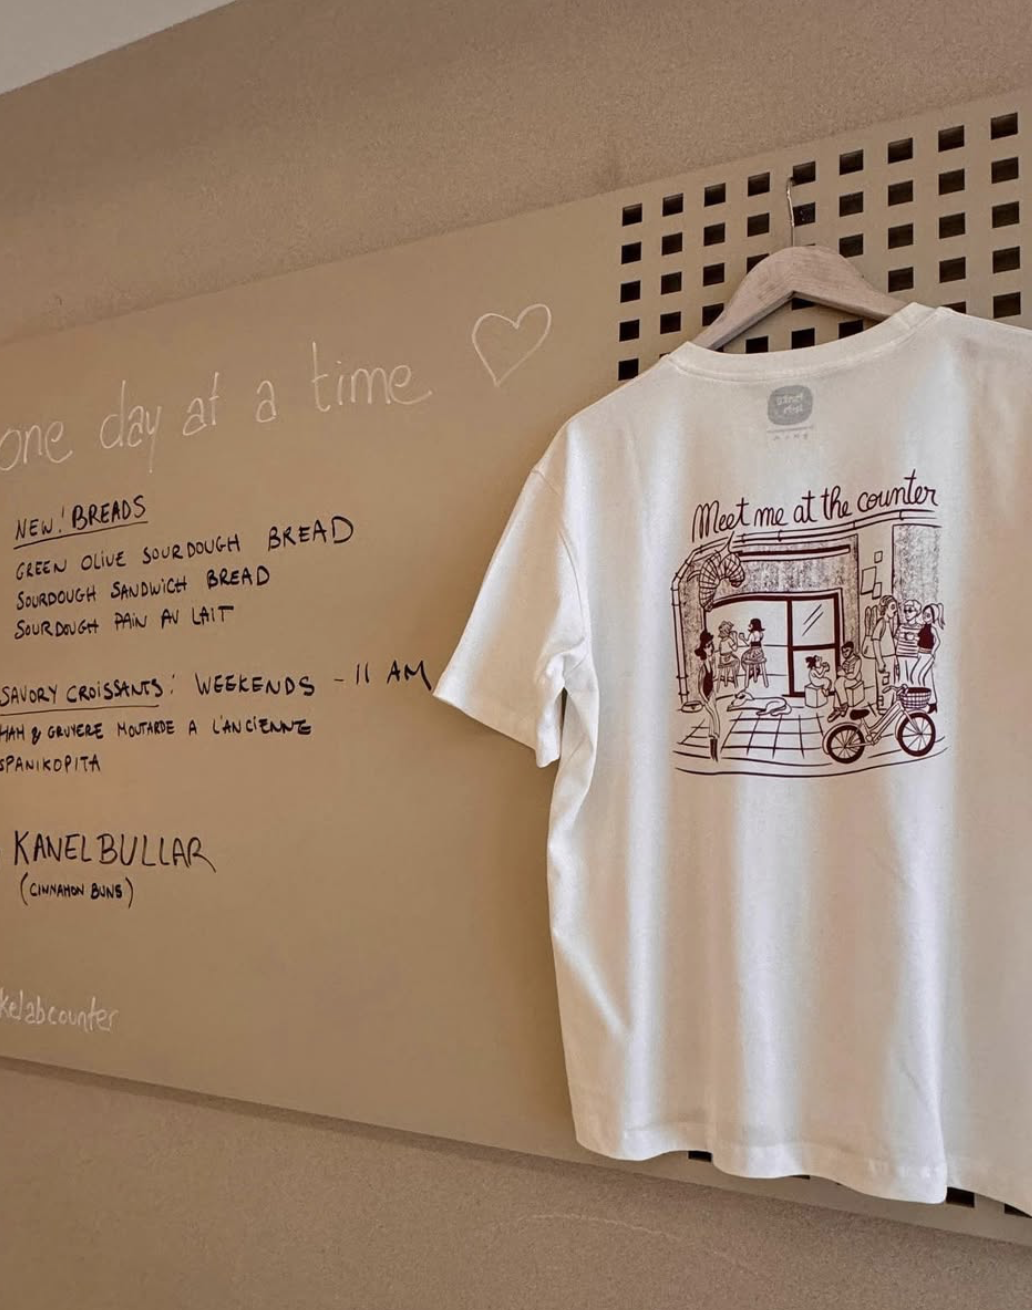 one day at a time
NEW! BREADS
GREEN OLIVE SOURDOUGH BREAD
SOURDOUGH SANDWICH BREAD
SOURDOUGH PAIN AU LAIT
SAVORY CROISSANTS: WEEKENDS - 11 AM
HAM & GRUYERE MOUTARDE A L'ANCIENNE
SPANIKOPITA
KANELBULLAR
(CINNAMON BUNS)
kelabcounter
Meet me at the counter